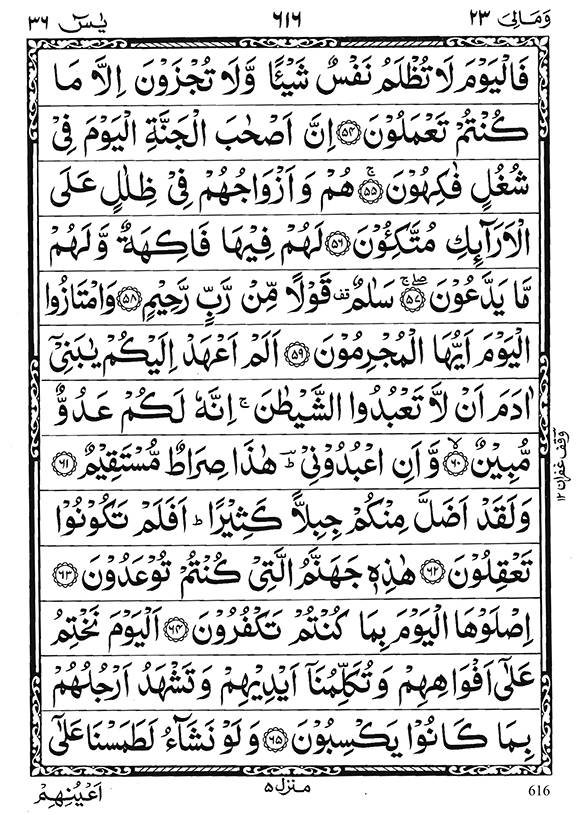 وَمَالِىَ ٢٣ ٦١٦ يٰسٓ ٣٦
فَالْيَوْمَ لَا تُظْلَمُ نَفْسٌ شَيْـًٔا وَّلَا تُجْزَوْنَ اِلَّا مَا
كُنْتُمْ تَعْمَلُوْنَ ۝٥٤ اِنَّ اَصْحٰبَ الْجَنَّةِ الْيَوْمَ فِىْ
شُغُلٍ فٰكِهُوْنَ ۚ۝٥٥ هُمْ وَاَزْوَاجُهُمْ فِىْ ظِلٰلٍ عَلَى
الْاَرَآئِكِ مُتَّكِـُٔوْنَ ۝٥٦ لَهُمْ فِيْهَا فَاكِهَةٌ وَّلَهُمْ
مَّا يَدَّعُوْنَ ۚۖ۝٥٧ سَلٰمٌ قف قَوْلًا مِّنْ رَّبٍّ رَّحِيْمٍ ۝٥٨ وَامْتَازُوا
الْيَوْمَ اَيُّهَا الْمُجْرِمُوْنَ ۝٥٩ اَلَمْ اَعْهَدْ اِلَيْكُمْ يٰبَنِىْٓ
اٰدَمَ اَنْ لَّا تَعْبُدُوا الشَّيْطٰنَ ۚ اِنَّهٗ لَكُمْ عَدُوٌّ
مُّبِيْنٌ ۙ۝٦٠ وَّاَنِ اعْبُدُوْنِىْ ؕ هٰذَا صِرَاطٌ مُّسْتَقِيْمٌ ۝٦١
وقف غفران ١٢
وَلَقَدْ اَضَلَّ مِنْكُمْ جِبِلًّا كَثِيْرًا ؕ اَفَلَمْ تَكُوْنُوْا
تَعْقِلُوْنَ ۝٦٢ هٰذِهٖ جَهَنَّمُ الَّتِىْ كُنْتُمْ تُوْعَدُوْنَ ۝٦٣
اِصْلَوْهَا الْيَوْمَ بِمَا كُنْتُمْ تَكْفُرُوْنَ ۝٦٤ اَلْيَوْمَ نَخْتِمُ
عَلٰٓى اَفْوَاهِهِمْ وَتُكَلِّمُنَآ اَيْدِيْهِمْ وَتَشْهَدُ اَرْجُلُهُمْ
بِمَا كَانُوْا يَكْسِبُوْنَ ۝٦٥ وَلَوْ نَشَآءُ لَطَمَسْنَا عَلٰٓى
اَعْيُنِهِمْ منزل ٥ 616